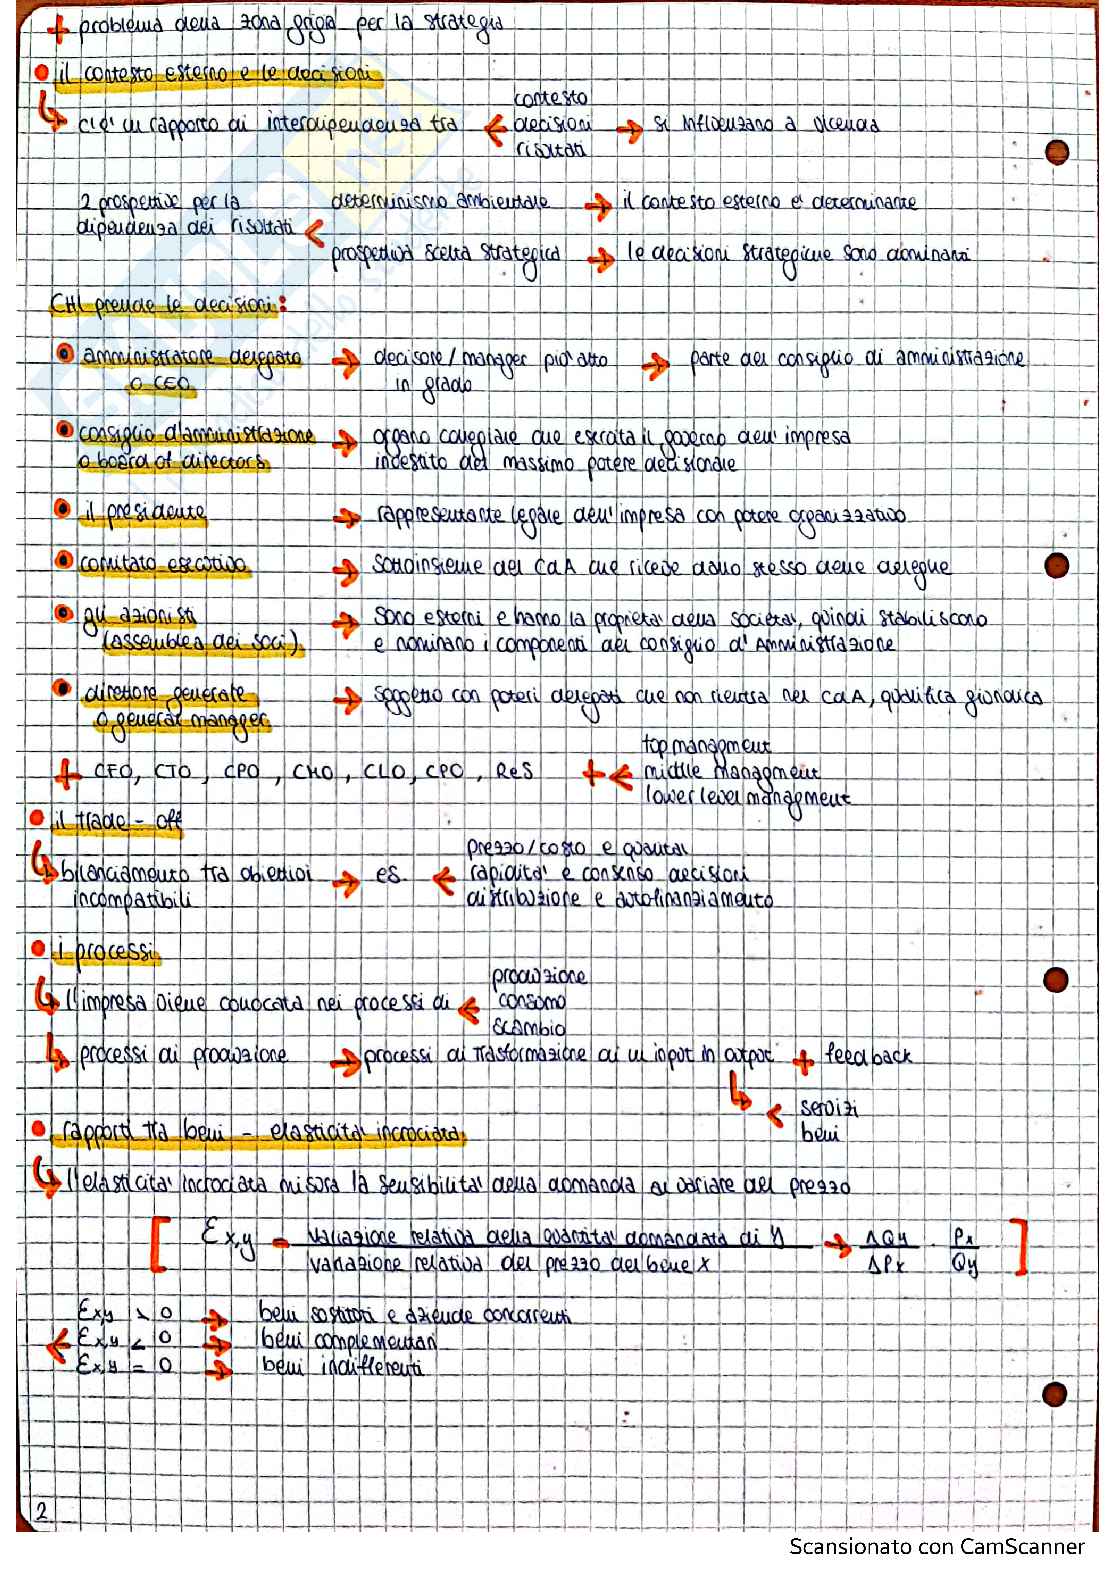 + problema della zona grigia per la strategia
il contesto esterno e le decisioni
c'è un rapporto di interdipendenza tra
contesto
decisioni → si influenzano a vicenda
risultati
2 prospettive per la
dipendenza dei risultati
determinismo ambientale → il contesto esterno è determinante
prospettiva scelta strategica → le decisioni strategiche sono dominanti
CHI prende le decisioni:
amministratore delegato → decisore/manager più alto → parte del consiglio di amministrazione
o CEO in grado
consiglio d'amministrazione → organo collegiale che esercita il governo dell'impresa
o board of directors indestito del massimo potere decisionale
il presidente → rappresentante legale dell'impresa con potere organizzativo
comitato esecutivo → sottoinsieme del CdA che riceve dallo stesso delle deleghe
gli azionisti → sono esterni e hanno la proprietà della società, quindi stabiliscono
(assemblea dei soci) e nominano i componenti del consiglio d'Amministrazione
direttore generale → soggetto con poteri delegati che non rientra nel CdA, qualifica
o general manager
top managment
+ CFO, CTO, CPO, CMO, CLO, CPO, ReS + middle managment
lower level managment
il trade-off
prezzo/costo e qualità
bilanciamento tra obiettivi → es. rapidità e consenso decisioni
incompatibili distribuzione e autofinanziamento
i processi
produzione
l'impresa viene collocata nei processi di consumo
scambio
processi di produzione → processi di trasformazione di un input in output + feedback
servizi
beni
rapporti tra beni - elasticità incrociata
l'elasticità incrociata misura la sensibilità della domanda al variare del prezzo
[ Ex,y = variazione relativa della quantità domandata di y → ΔQy · Px ]
variazione relativa del prezzo del bene x ΔPx Qy
Ex,y > 0 → beni sostituti e aziende concorrenti
Ex,y < 0 → beni complementari
Ex,y = 0 → beni indifferenti
2
Scansionato con CamScanner